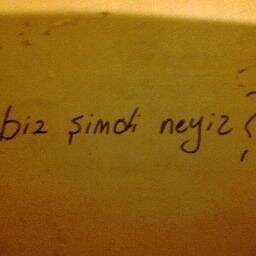 biz şimdi neyiz ?